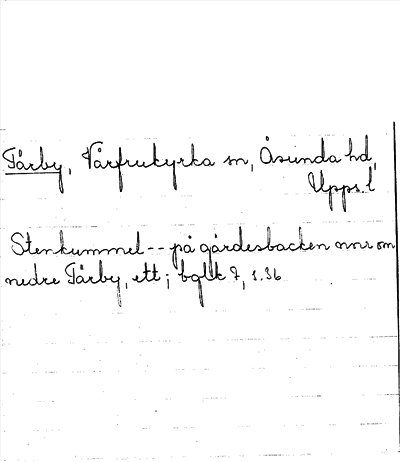 Tårby, Vårfrukyrka sn, Åsunda hd,
Upps. l
Stenkummel -- på gärdesbacken nnr om
nedre Tårby, ett; bglk 7, s. 36